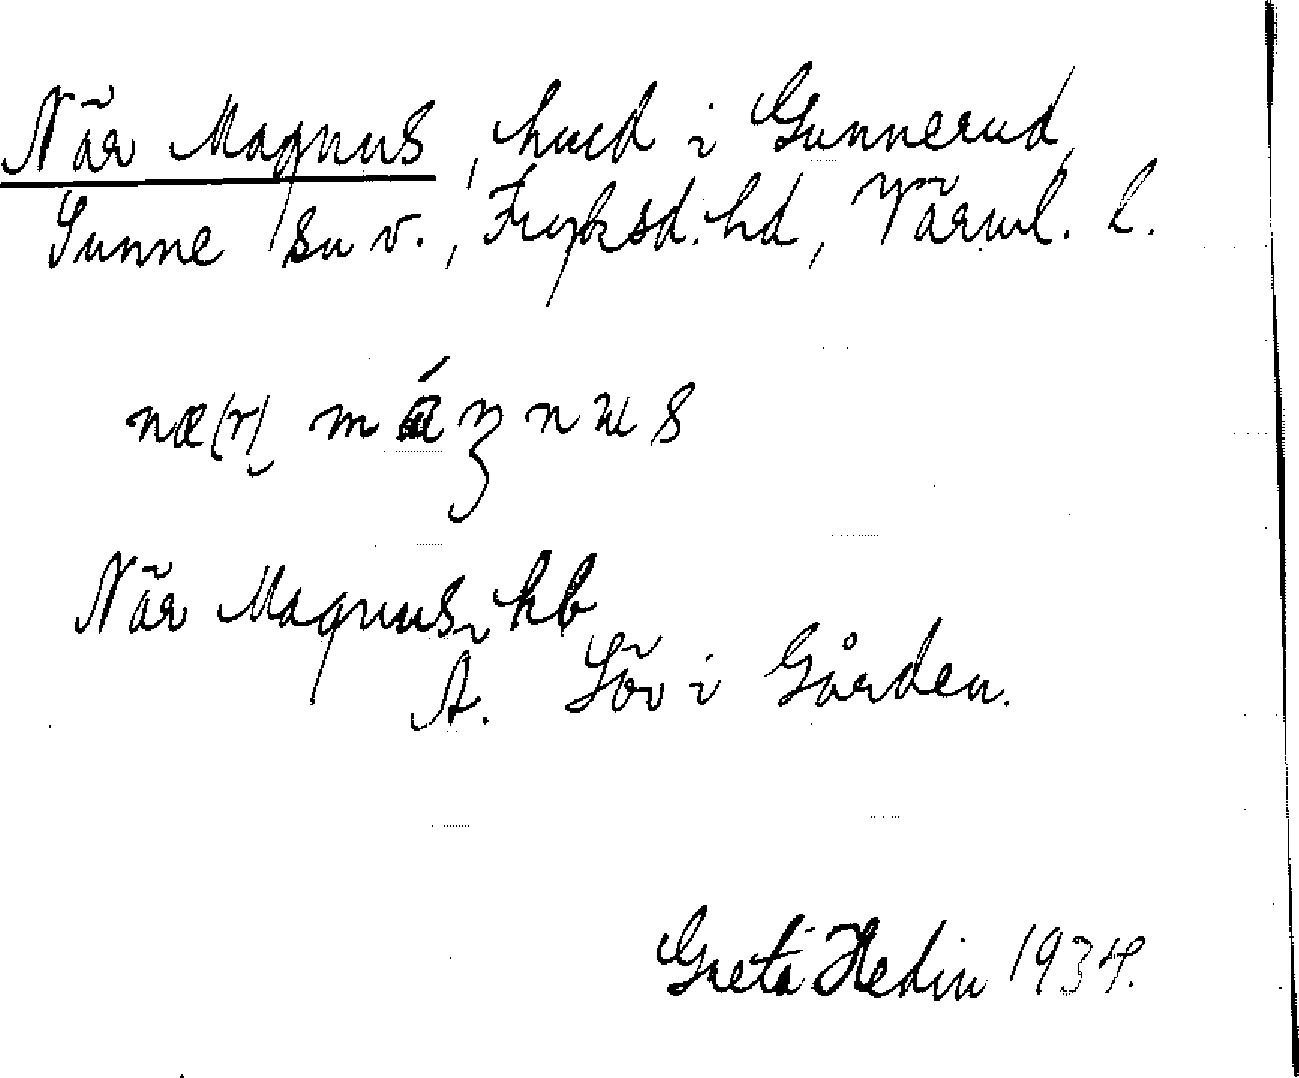 När Magnus, hmd i Gunnerud,
Sunne sn v., Fryksd. hd, Värml. l.
næ(r) máʒnus
När Magnus, hb
A. Löv i Gården.
Greta Hedin 1934.